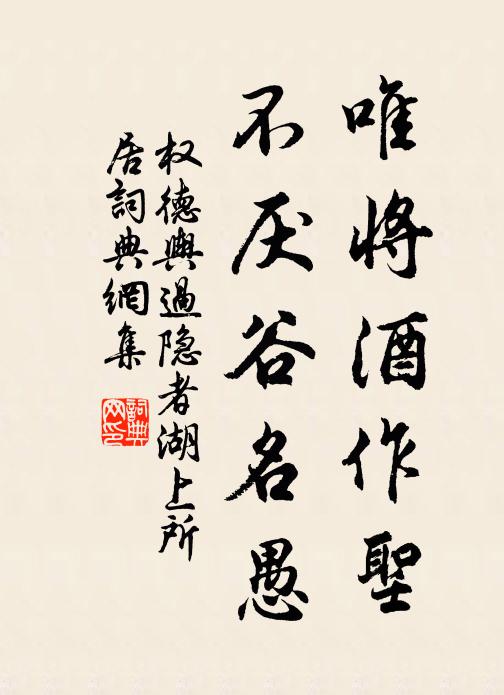 唯将酒作聖
不厌谷名愚
权德輿過隐者湖上所
居詞典網集
詞典
网印